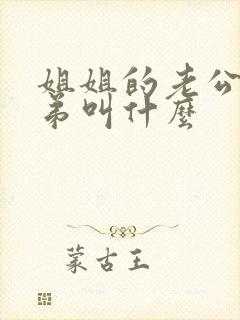 姐姐的老公
弟叫什麼
蒙古王